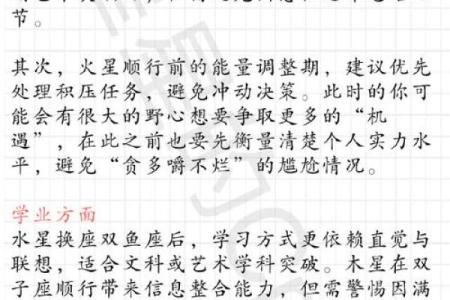 节。
其次，火星顺行前的能量调整期，建议优先
处理积压任务，避免冲动决策。此时的你可
能会有很大的野心想要争取更多的“机
遇”，在此之前也要先衡量清楚个人实力水
平，避免“贪多嚼不烂”的尴尬情况。
学业方面
水星换座双鱼座后，学习方式更依赖直觉与
联想，适合文科或艺术学科突破。木星在双
子座顺行带来信息整合能力，但需警惕因满